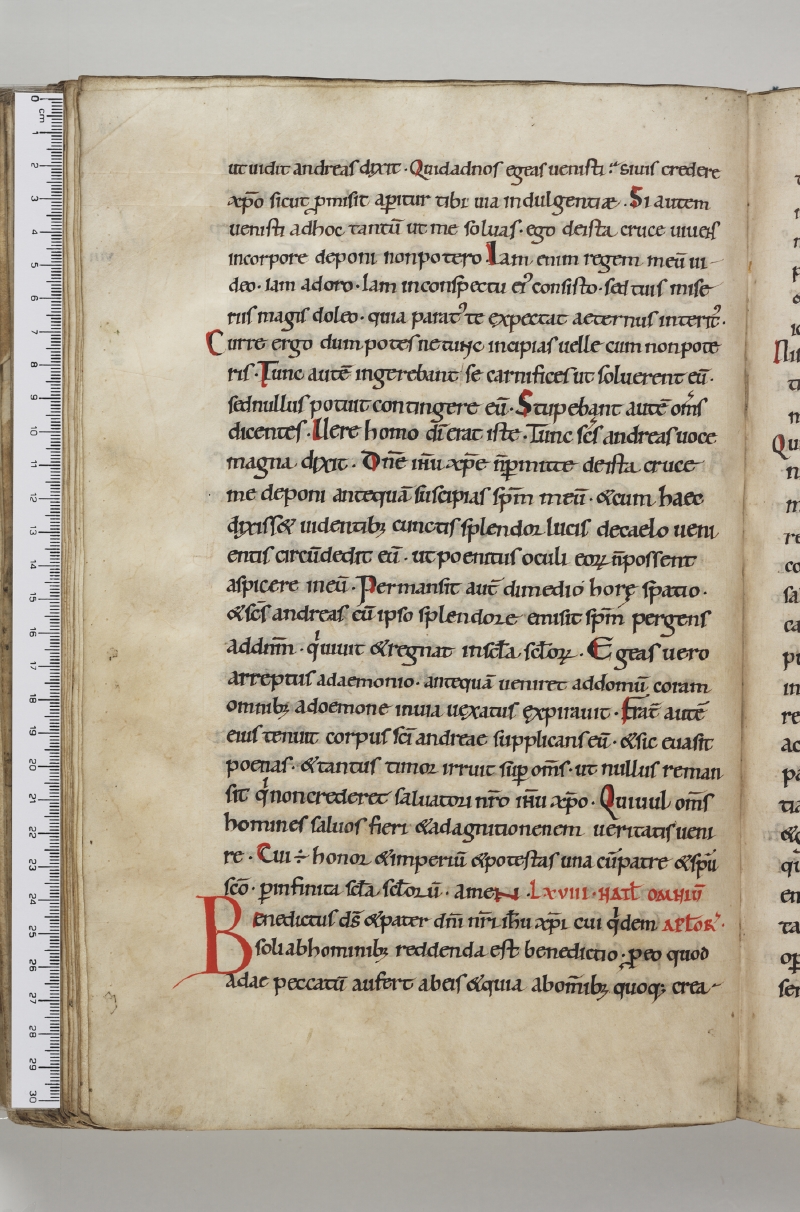 ut uidit andreas dixit · Quid ad nos egeas uenisti ? Si uis credere
xp̄o sicut ꝓmisit aꝑitur tibi uia indulgentiæ · Si autem
uenisti ad hoc tantū ut me soluas · ego de ista cruce uiuens
in corpore deponi non potero · Iam enim regem meū ui
deo · iam adoro · Iam in conspectu ei᾿ consisto · sed tuis mise
riis magis doleo · quia parat᾿ te expectat aeternus interit᾿ ·
Curre ergo dum potes ne tunc incipias uelle cum non pote
ris · Tunc autē ingerebant se carnifices ut soluerent eū ·
sed nullus potuit contingere eū · Stupebant autē om̄s
dicentes · Uere homo dī erat iste · Tunc sc̄s andreas uoce
magna dixit · Dn̄e ih̄u xp̄e n̄ ꝑmitte de ista cruce
me deponi antequā suscipias sp̄m meū · & cum haec
dixiss& uidentibꝫ cunctis splendor lucis de caelo ueni
entis circūdedit eū · ut poenitus oculi eoꝝ n̄ possent
aspicere in eū · Permansit aut̄ dimedio horę spatio ·
& sc̄s andreas cū ipso splendore emisit sp̄m pergens
ad dn̄m · qͥ uiuit & regnat in sc̄la · sc̄loꝝ · Egeas uero
arreptus a daemonio · antequā ueniret ad domū coram
omnibꝫ a doemone in uia uexatus expirauit · frat̄ autē
eius tenuit corpus sc̄i andreae supplicans eū · & sic euasit
poenas · & tantus timor irruit suꝑ om̄s · ut nullus reman
sit qͥ non crederet saluatori nr̄o ih̄u xp̄o · Qui uul om̄s
homines saluos fieri & ad agnitionenem ueritatis ueni
re · Cui ÷ honor & imperiū & potestas una cū patre & sp̄u
sc̄o · ꝑ infinita sc̄la sc̄lorū · amen · LXVIII · NAT̄ OMNIŪ
Benedictus ds̄ & pater dn̄i nr̄i ih̄u xp̄i cui qͥdem AP̄LOꝜ ·
soli ab hominibꝫ reddenda est benedictio · ꝓ eo quod
adae peccatū aufert ab eis & quia ab om̄ibꝫ quoqꝫ crea